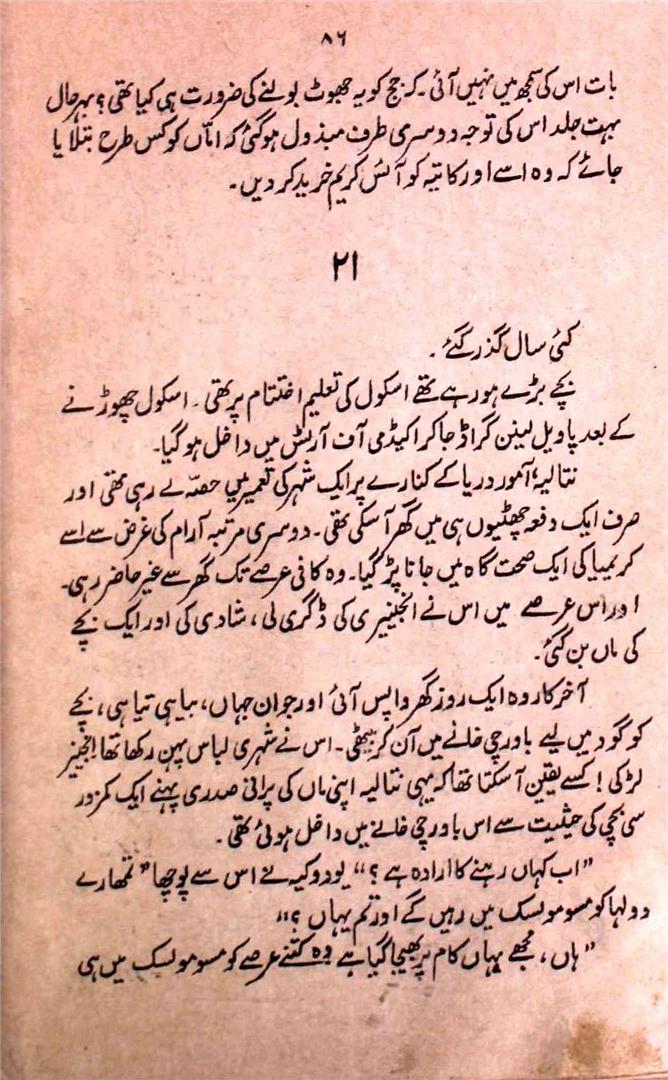 ۸۶
بات اس کی سمجھ میں نہیں آئی۔ کہ جج کو یہ جھوٹ بولنے کی ضرورت ہی کیا تھی؟ بہر حال
بہت جلد اس کی توجہ دوسری طرف مبذول ہو گئی کہ اماّں کو کس طرح بتلا یا
جائے کہ وہ اسے اور کاتیہ کو آئس کریم خرید کر دیں۔
۲۱
کئی سال گذر گئے۔
بچے بڑے ہو رہے تھے اسکول کی تعلیم اختتام پر تھی۔ اسکول چھوڑنے
کے بعد پاویل لینن گراڈ جا کر اکیڈمی آف آرٹس میں داخل ہو گیا۔
نتالیہ، آمور دریا کے کنارے پر ایک شہر کی تعمیر میں حصّہ لے رہی تھی اور
صرف ایک دفعہ چھٹیوں ہی میں گھر آ سکی تھی۔ دوسری مرتبہ آرام کی غرض سے اسے
کریمیا کی ایک صحت گاہ میں جانا پڑ گیا۔ وہ کافی عرصے تک گھر سے غیر حاضر رہی۔
اور اس عرصے میں اس نے انجنیری کی ڈگری لی، شادی کی اور ایک بچے
کی ماں بن گئی۔
آخر کار وہ ایک روز گھر واپس آئی اور جوان جہاں، بیاہی تیاہی، بچے
کو گود میں لیے باورچی خانے میں آن کر بیٹھی۔ اس نے شہری لباس پہن رکھا تھا انجنیر
لڑکی! کسے یقین آ سکتا تھا کہ یہی نتالیہ اپنی ماں کی پرانی صدری پہنے ایک کمزور
سی بچی کی حیثیت سے اس باورچی خانے میں داخل ہوئی تھی۔
”اب کہاں رہنے کا ارادہ ہے؟“ یودوکیہ نے اس سے پوچھا ”تمھارے
دولہا کو مسومولسک میں رہیں گے اور تم یہاں؟“
”ہاں، مجھے یہاں کام پر بھیجا گیا ہے وہ کتنے عرصے کو مسومولسک میں ہی